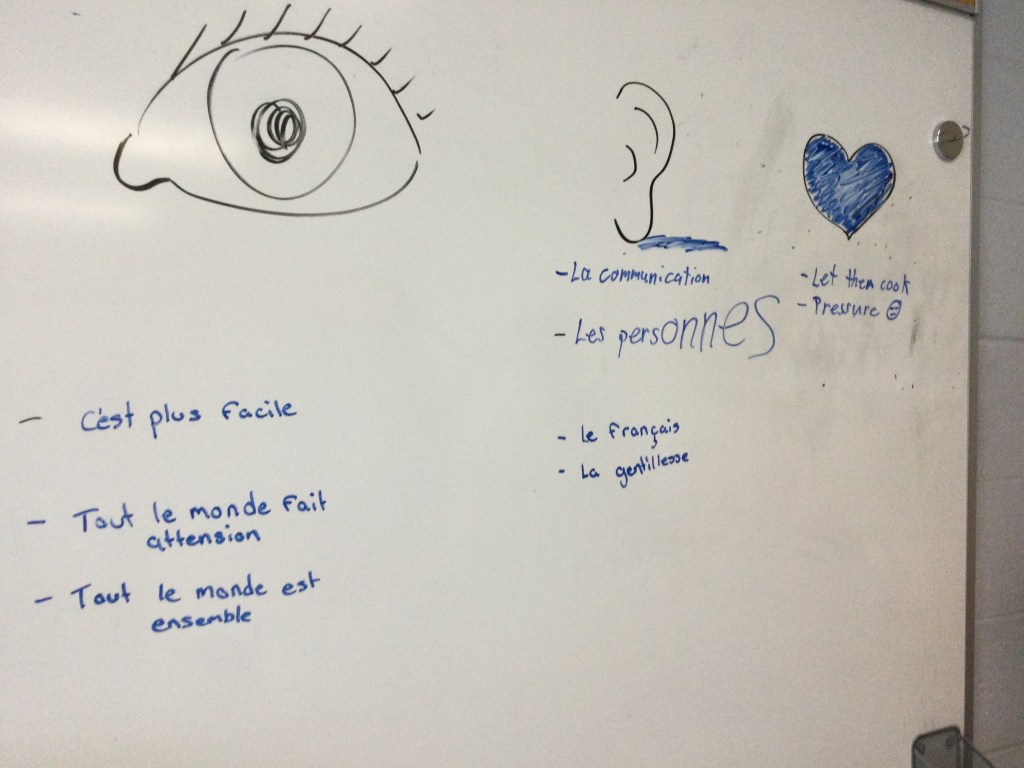 - C'est plus facile
- Tout le monde fait
attension
- Tout le monde est
ensemble
- La communication
- Les personnes
- le français
- La gentillesse
- Let them cook
- Pressure